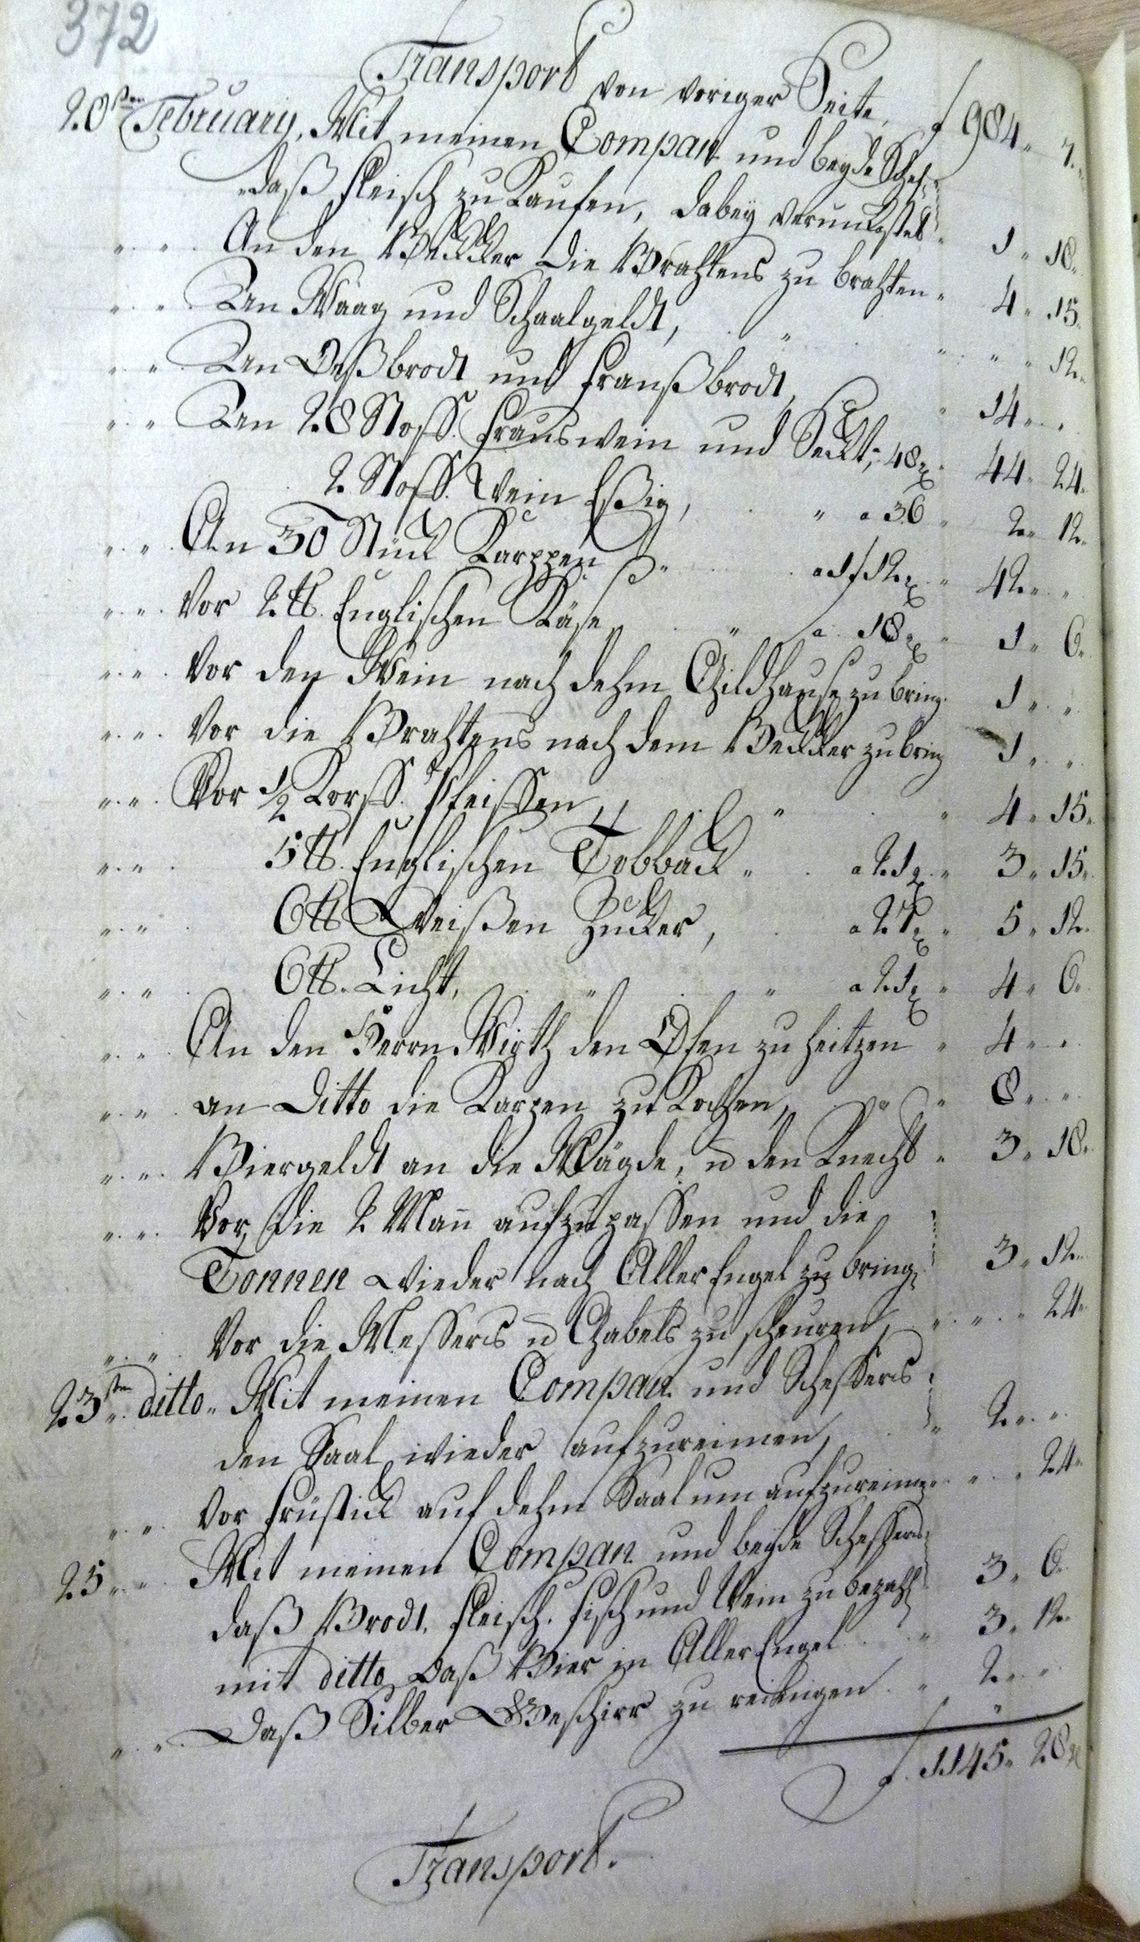 372
Transport von voriger Seite, f 984 „ 7 „
20sten February, Mit meinen Compan und beyde Schef„
daß fleisch zu Kaufen, dabey verunkostet „ 1 „ 18 „
„ „ An den Beckker die Brahtens zu brahten „ 4 „ 15 „
„ „ An Waag und Schaalgeldt, „ „ „ 12 „
„ „ An Oeßbrodt und franßbrodt, „ 14 „ „
„ „ An 28 Stoff. franswein und Seckt, 48 x „ 44 „ 24 „
2 Stoff. Wein Eßig, „ a 36 „ 2 „ 12 „
„ „ An 30 Stück Karppen „ a 1 f 12 x „ 42 „ „
„ „ Vor 2 ℔. Englischen Käse „ a 18 x „ 1 „ 6 „
„ „ Vor den Wein nach dehm Gildhause zu bring. 1 „ „
„ „ Vor die Brahtens nach dem Beckker zu bring 1 „ „
„ „ Vor 1/2 Korff. Pfeissen, „ „ 4 „ 15 „
„ „ 5 ℔. Englischen Tobback „ a 21 x „ 3 „ 15 „
„ „ 6 ℔ Weißen Zucker, a 27 x „ 5 „ 12 „
„ „ 6 ℔. Licht, „ „ a 21 x „ 4 „ 6 „
„ „ An den Herrn Wirth den Ofen zu heitzen „ 4 „ „
„ „ an Ditto die Karpen zu Kochen, „ „ 8 „ „
„ „ Biergeldt an die Mägde, u den Knecht „ 3 „ 18 „
„ „ Vor, die 2 Man̄ aufzupassen und die
Tonnen wieder nach Aller Engel zu bring„ 3 „ 12 „
„ „ Vor die Messers u Gabels zu scheuren, „ „ „ 24 „
23sten ditto „ Mit meinen Compan und Scheffers
den Saal wieder aufzureimen, „ 2 „ „
„ „ Vor früstück auf dehm Saal um aufzureimen „ „ 24 „
25 „ „ Mit meinen Compan und beyde Scheffers
daß Brodt, fleisch, fisch und Wein zu bezahl 3 „ 6 „
mit ditto, daß Bier in Aller Engel „ 3 „ 12 „
„ „ Daß Silber Geschirr zu reinigen „ 2 „ „
f 1145 „ 28 x
Transport.